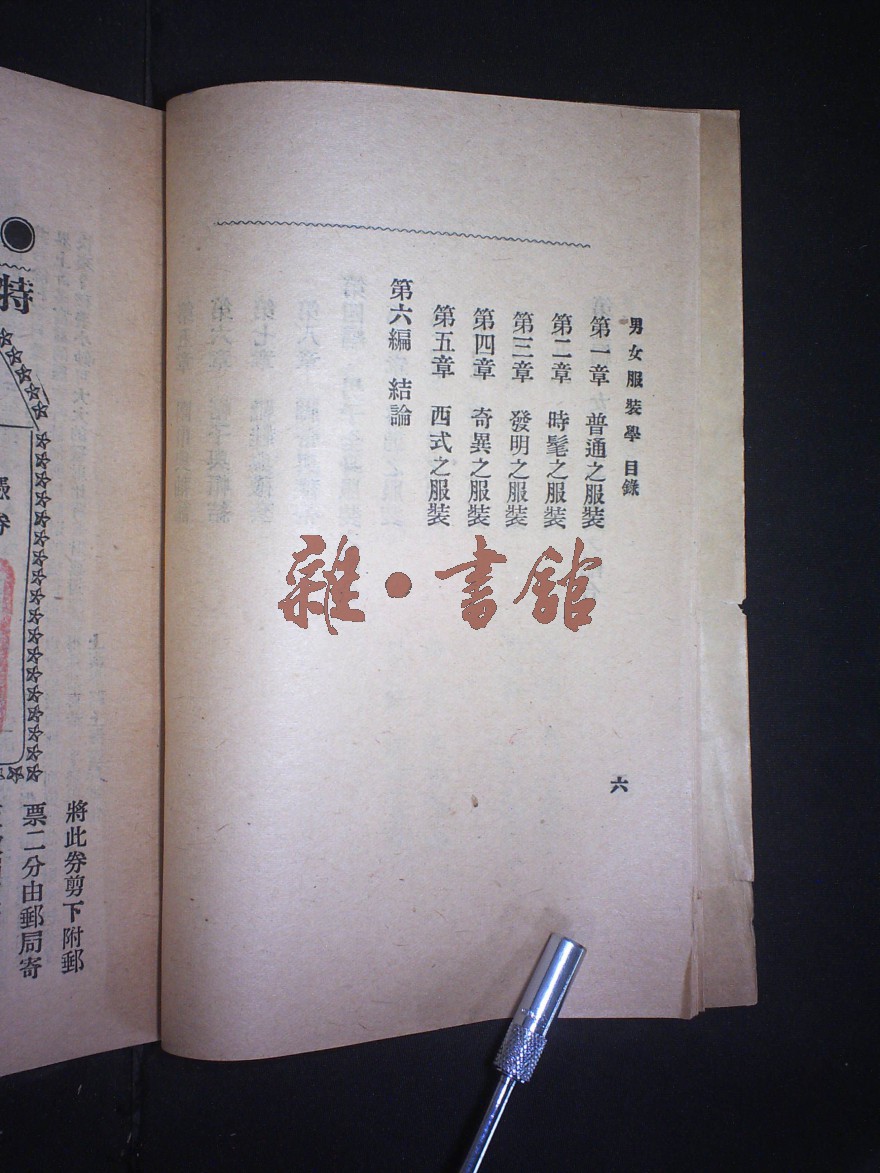 男女服裝學 目錄
第一章 普通之服裝
第二章 時髦之服裝
第三章 發明之服裝
第四章 奇異之服裝
第五章 西式之服裝
第六編 結論
六
雜·書館
特
將此券剪下附郵
票二分由郵局寄